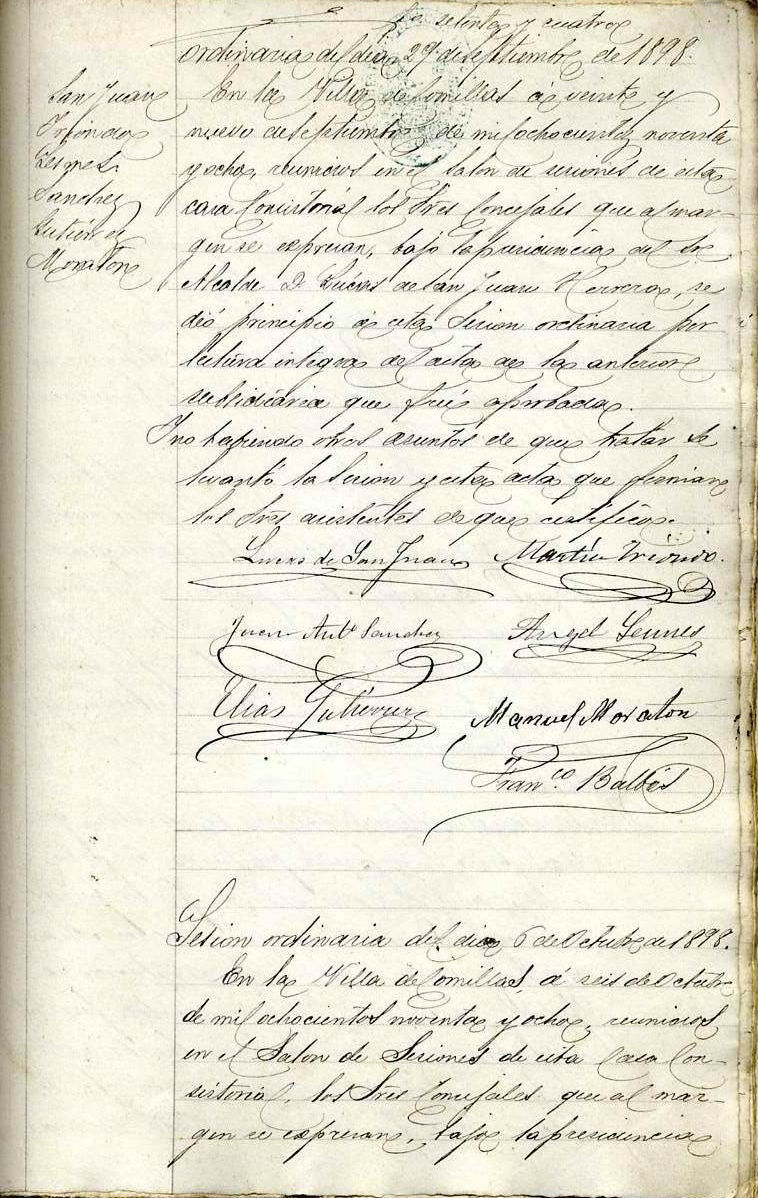 setenta y cuatro
ordinaria del dia 29 de septiembre de 1898.
San Juan
Triondo
Lesmes
Sanchez
Gutierrez
Moraton
En la Villa de Comillas á veinte y
nueve de Septiembre de mil ochocientos noventa
y ocho, reunidos en el Salon de sesiones de esta
casa Consistorial los Sres Concejales que al mar-
gen se expresan, bajo la presidencia del Sr
Alcalde D. Lúcas de San Juan Herrera, se
dió principio á esta Sesion ordinaria por
lectura integra del acta de la anterior
subsidiaria que fué aprobada.
Y no habiendo otros asuntos de que tratar se
levantó la Sesion y esta acta que firman
los Sres asistentes de que certifico.
Lucas de San Juan Martin Triondo.
Juan Antº Sanchez Angel Lesmes
Elias Gutierrez Manuel Moraton
Franco. Balbás
Sesion ordinaria del dia 6 de Octubre de 1898.
En la Villa de Comillas, á seis de Octubre
de mil ochocientos noventa y ocho, reunidos
en el Salon de Sesiones de esta Casa Con-
sistorial, los Sres Concejales que al mar-
gen se expresan, bajo la presidencia